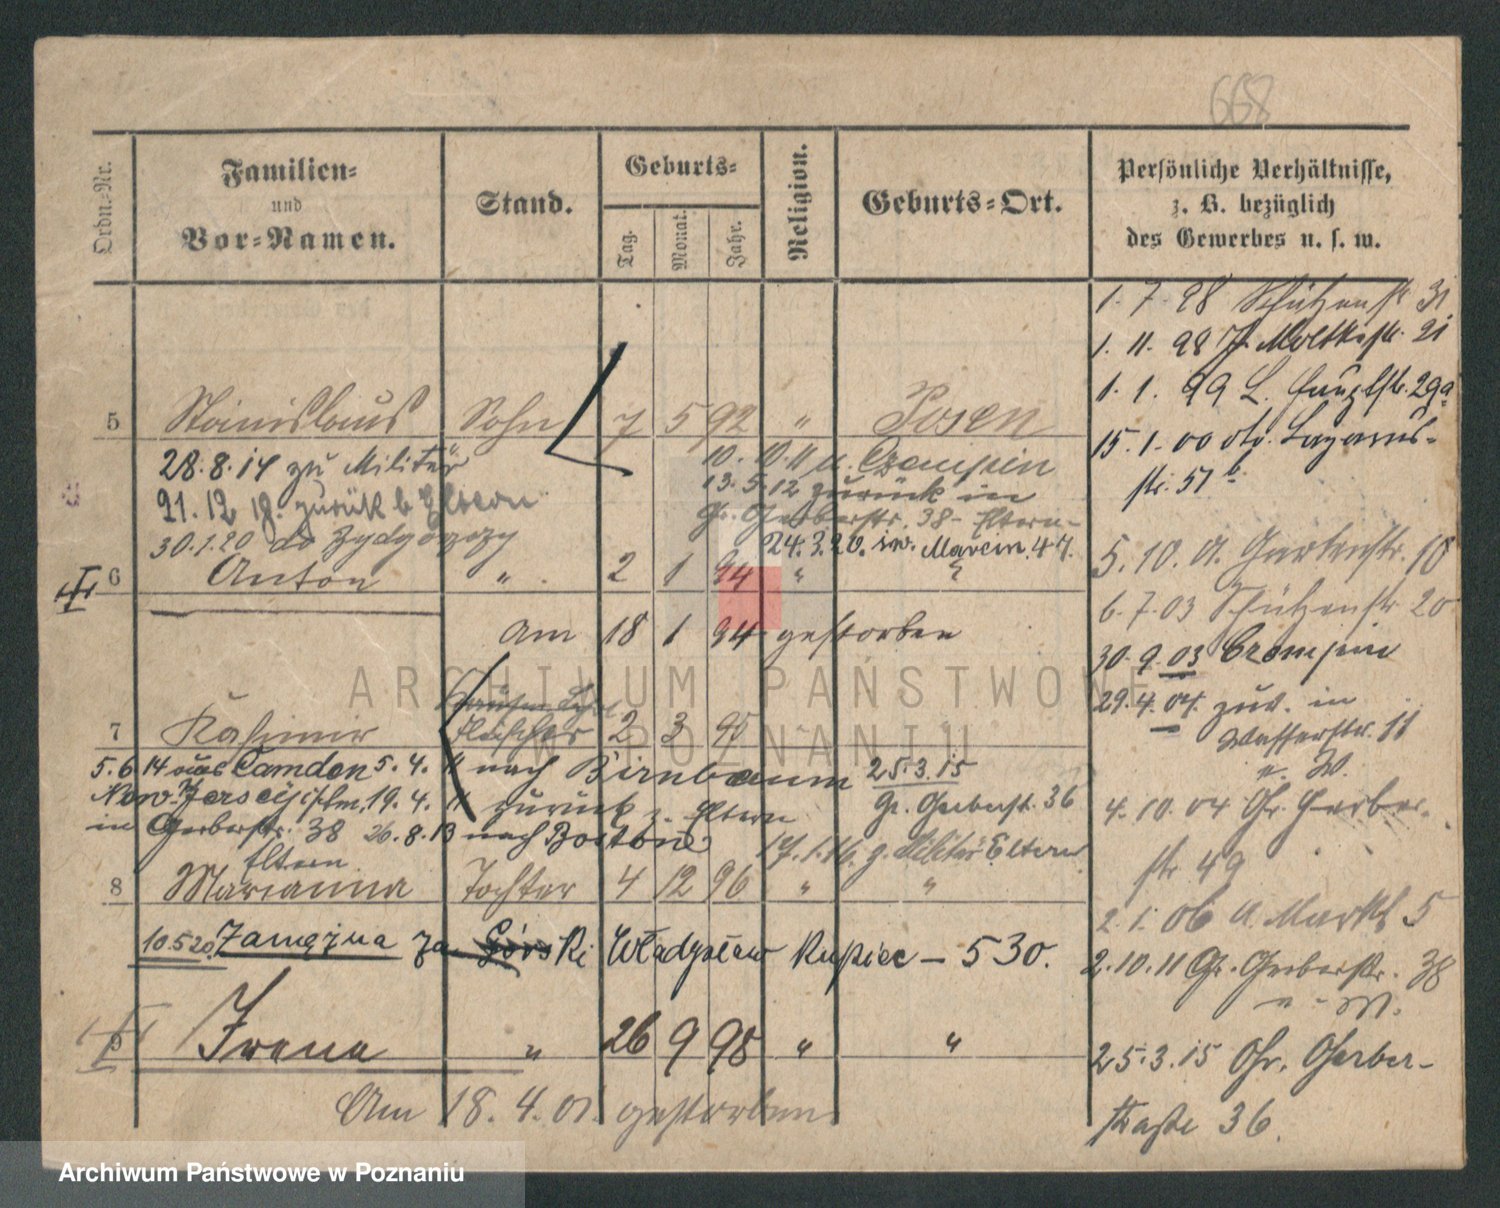 668
Ordn.-Nr.
Familien-
und
Vor-Namen.
Stand.
Geburts-
Tag.
Monat.
Jahr.
Religion.
Geburts-Ort.
Persönliche Verhältnisse,
z. B. bezüglich
des Gewerbes u. s. w.
5 Stanislaus Sohn 7 5 92 " Posen
28.8.14 zu Militär
21.12.18. zurück b Eltern
30.1.20 do
10.10.11 n.
13.5.12 zurück in
Gr. Gerberstr. 38 - Eltern -
24.3.20. św. Marcin 47.
6 Anton " 2 1 94 " "
am 18 1 94 gestorben
7 Kasimir Fleischer 2 3 95
5.6.14 aus Camden 5.4.11 nach Birnbaum 25.3.15
19.4.11 zurück z. Eltern Gr. Gerberst. 36
in Gerberstr. 38 26.8.13 nach
Eltern 17.1.16. z. Militär Eltern
8 Marianna Tochter 4 12 96 " "
10.5.20. Zamężna za Górski Władysław Kupiec - 530.
9 Irena " 26 9 98 " "
Am 18.4.01. gestorben
1.7.98 Schützenstr 31
1.11.98 Moltkestr. 21
1.1.99 L. Hauptstr. 29a
15.1.00 Lazarus-
str. 51b
5.10.01. Gartenstr. 18
6.7.03 Schützenstr 20
30.9.03
29.4.04. zur. in
Wasserstr. 11
n. W.
4.10.04 Gr. Gerber-
str 49
2.1.06 A. Markt 5
2.10.11 Gr. Gerberstr. 38
n. W.
25.3.15 Gr. Gerber-
straße 36.
ARCHIWUM PAŃSTWOWE
W POZNANIU
Archiwum Państwowe w Poznaniu